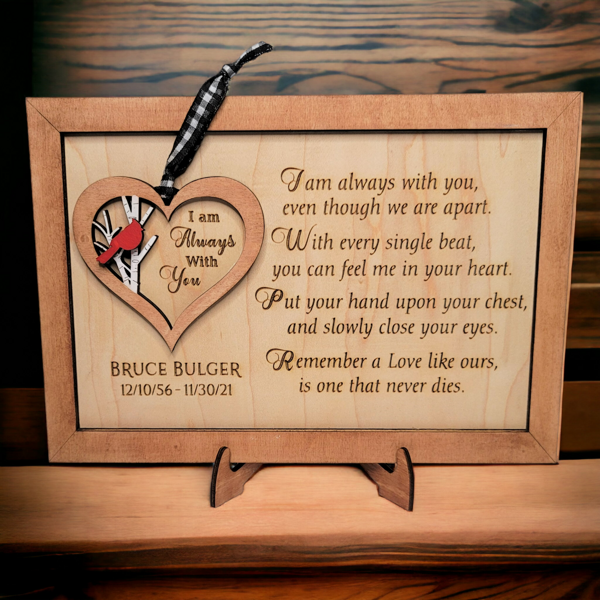 I am
Always
With
You
BRUCE BULGER
12/10/56 - 11/30/21
I am always with you,
even though we are apart.
With every single beat,
you can feel me in your heart.
Put your hand upon your chest,
and slowly close your eyes.
Remember a Love like ours,
is one that never dies.